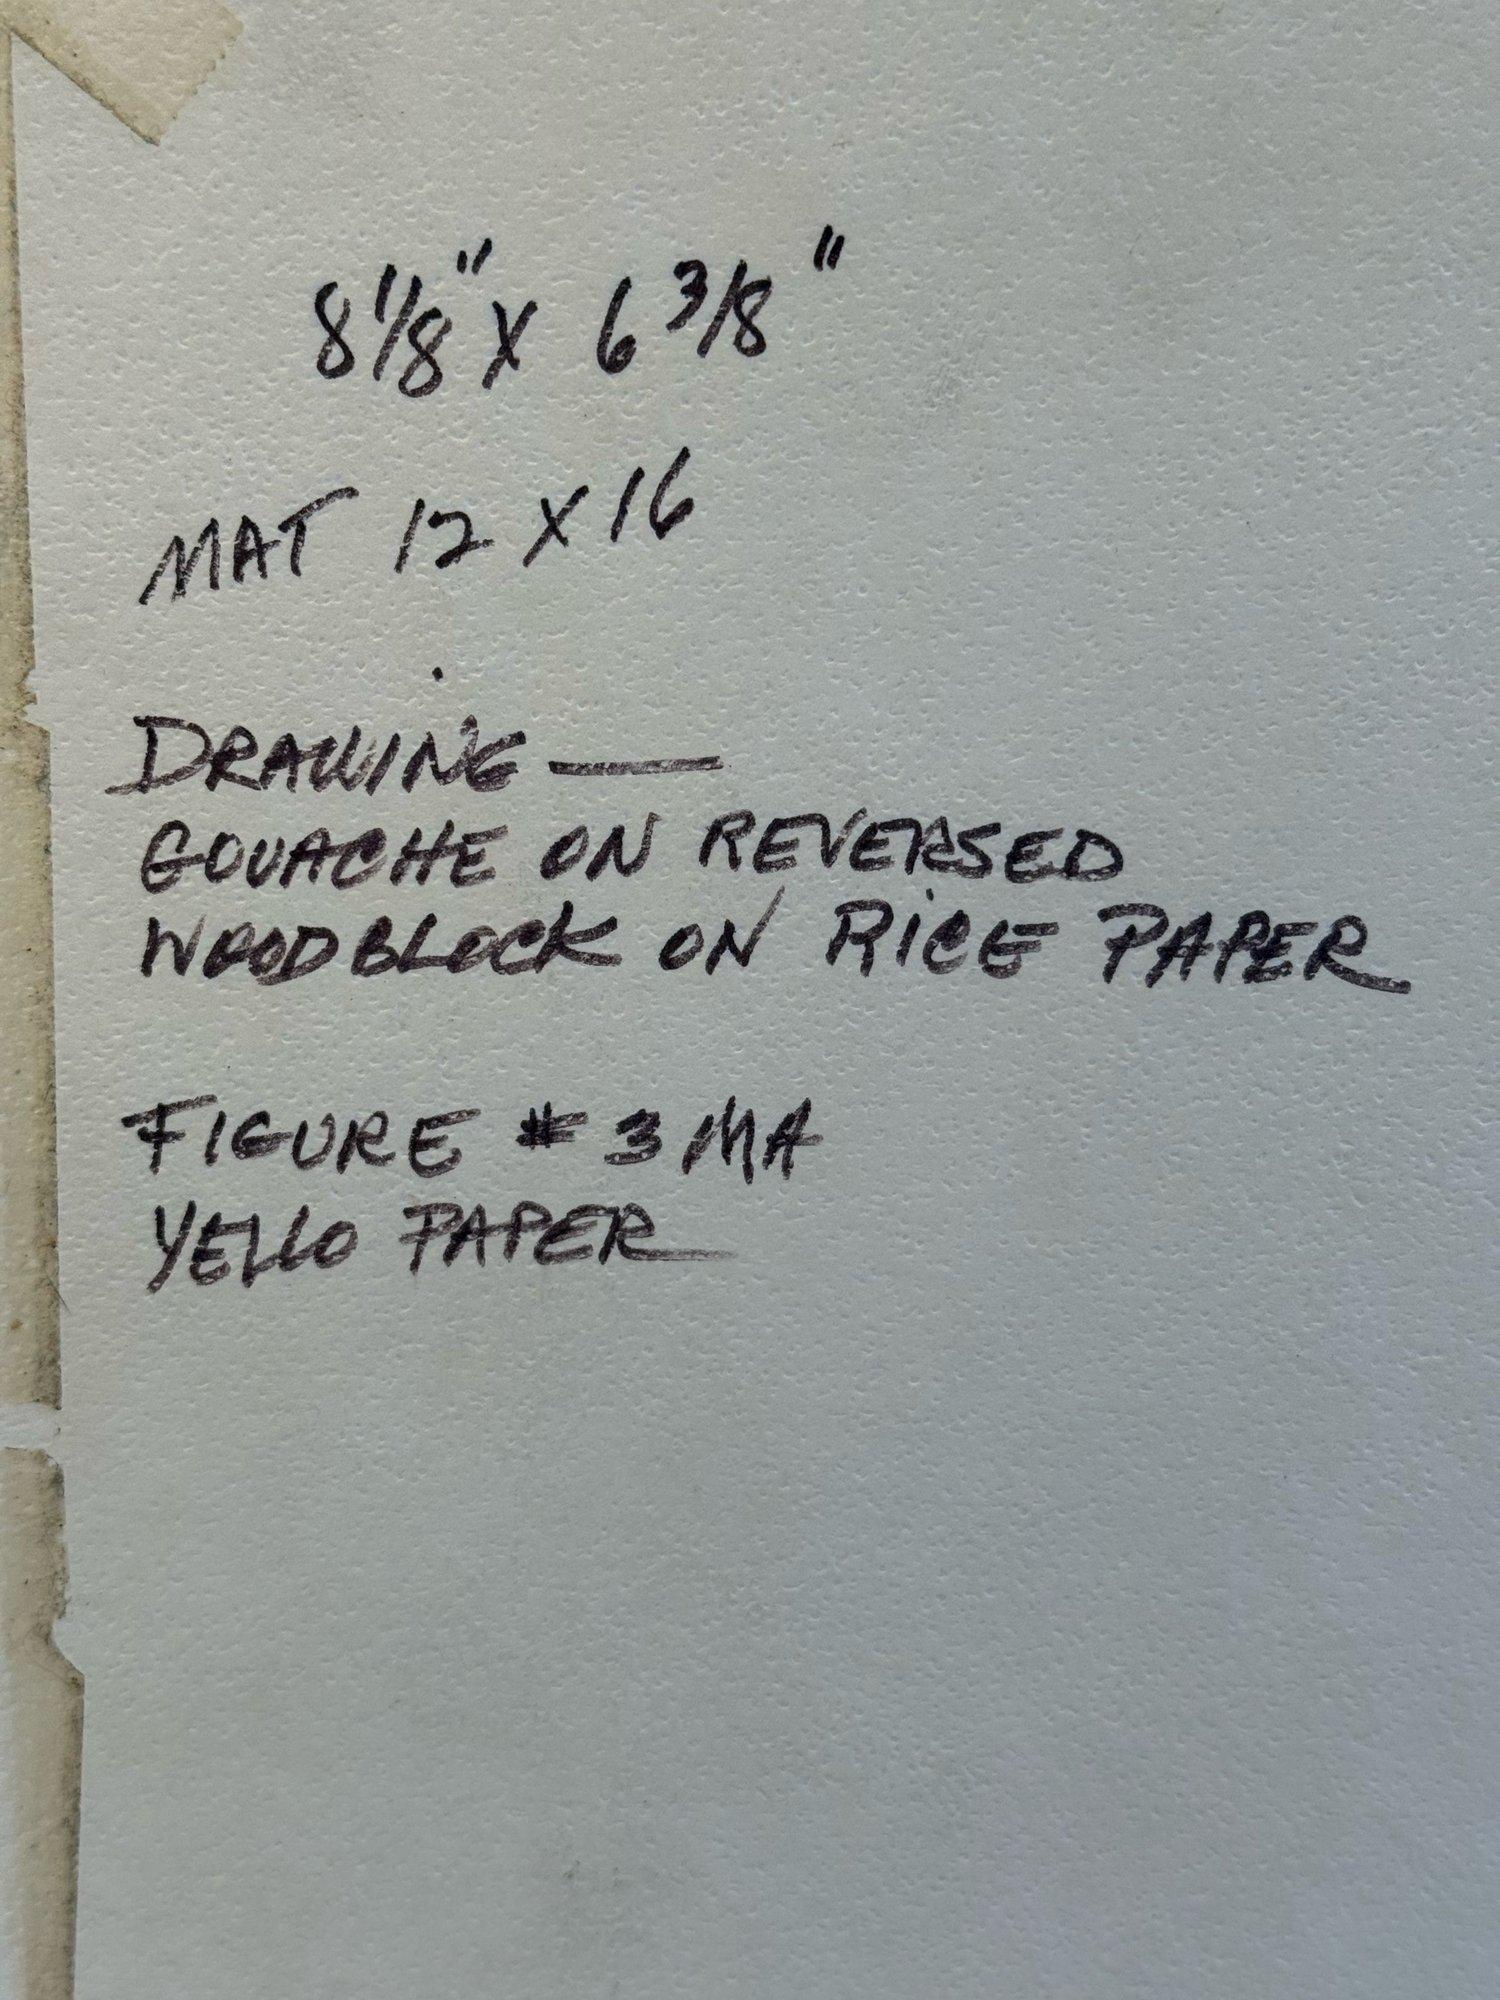 8 1/8" X 6 3/8"
MAT 12 X 16
DRAWING —
GOUACHE ON REVERSED
WOODBLOCK ON RICE PAPER
FIGURE # 3 MA
YELLO PAPER